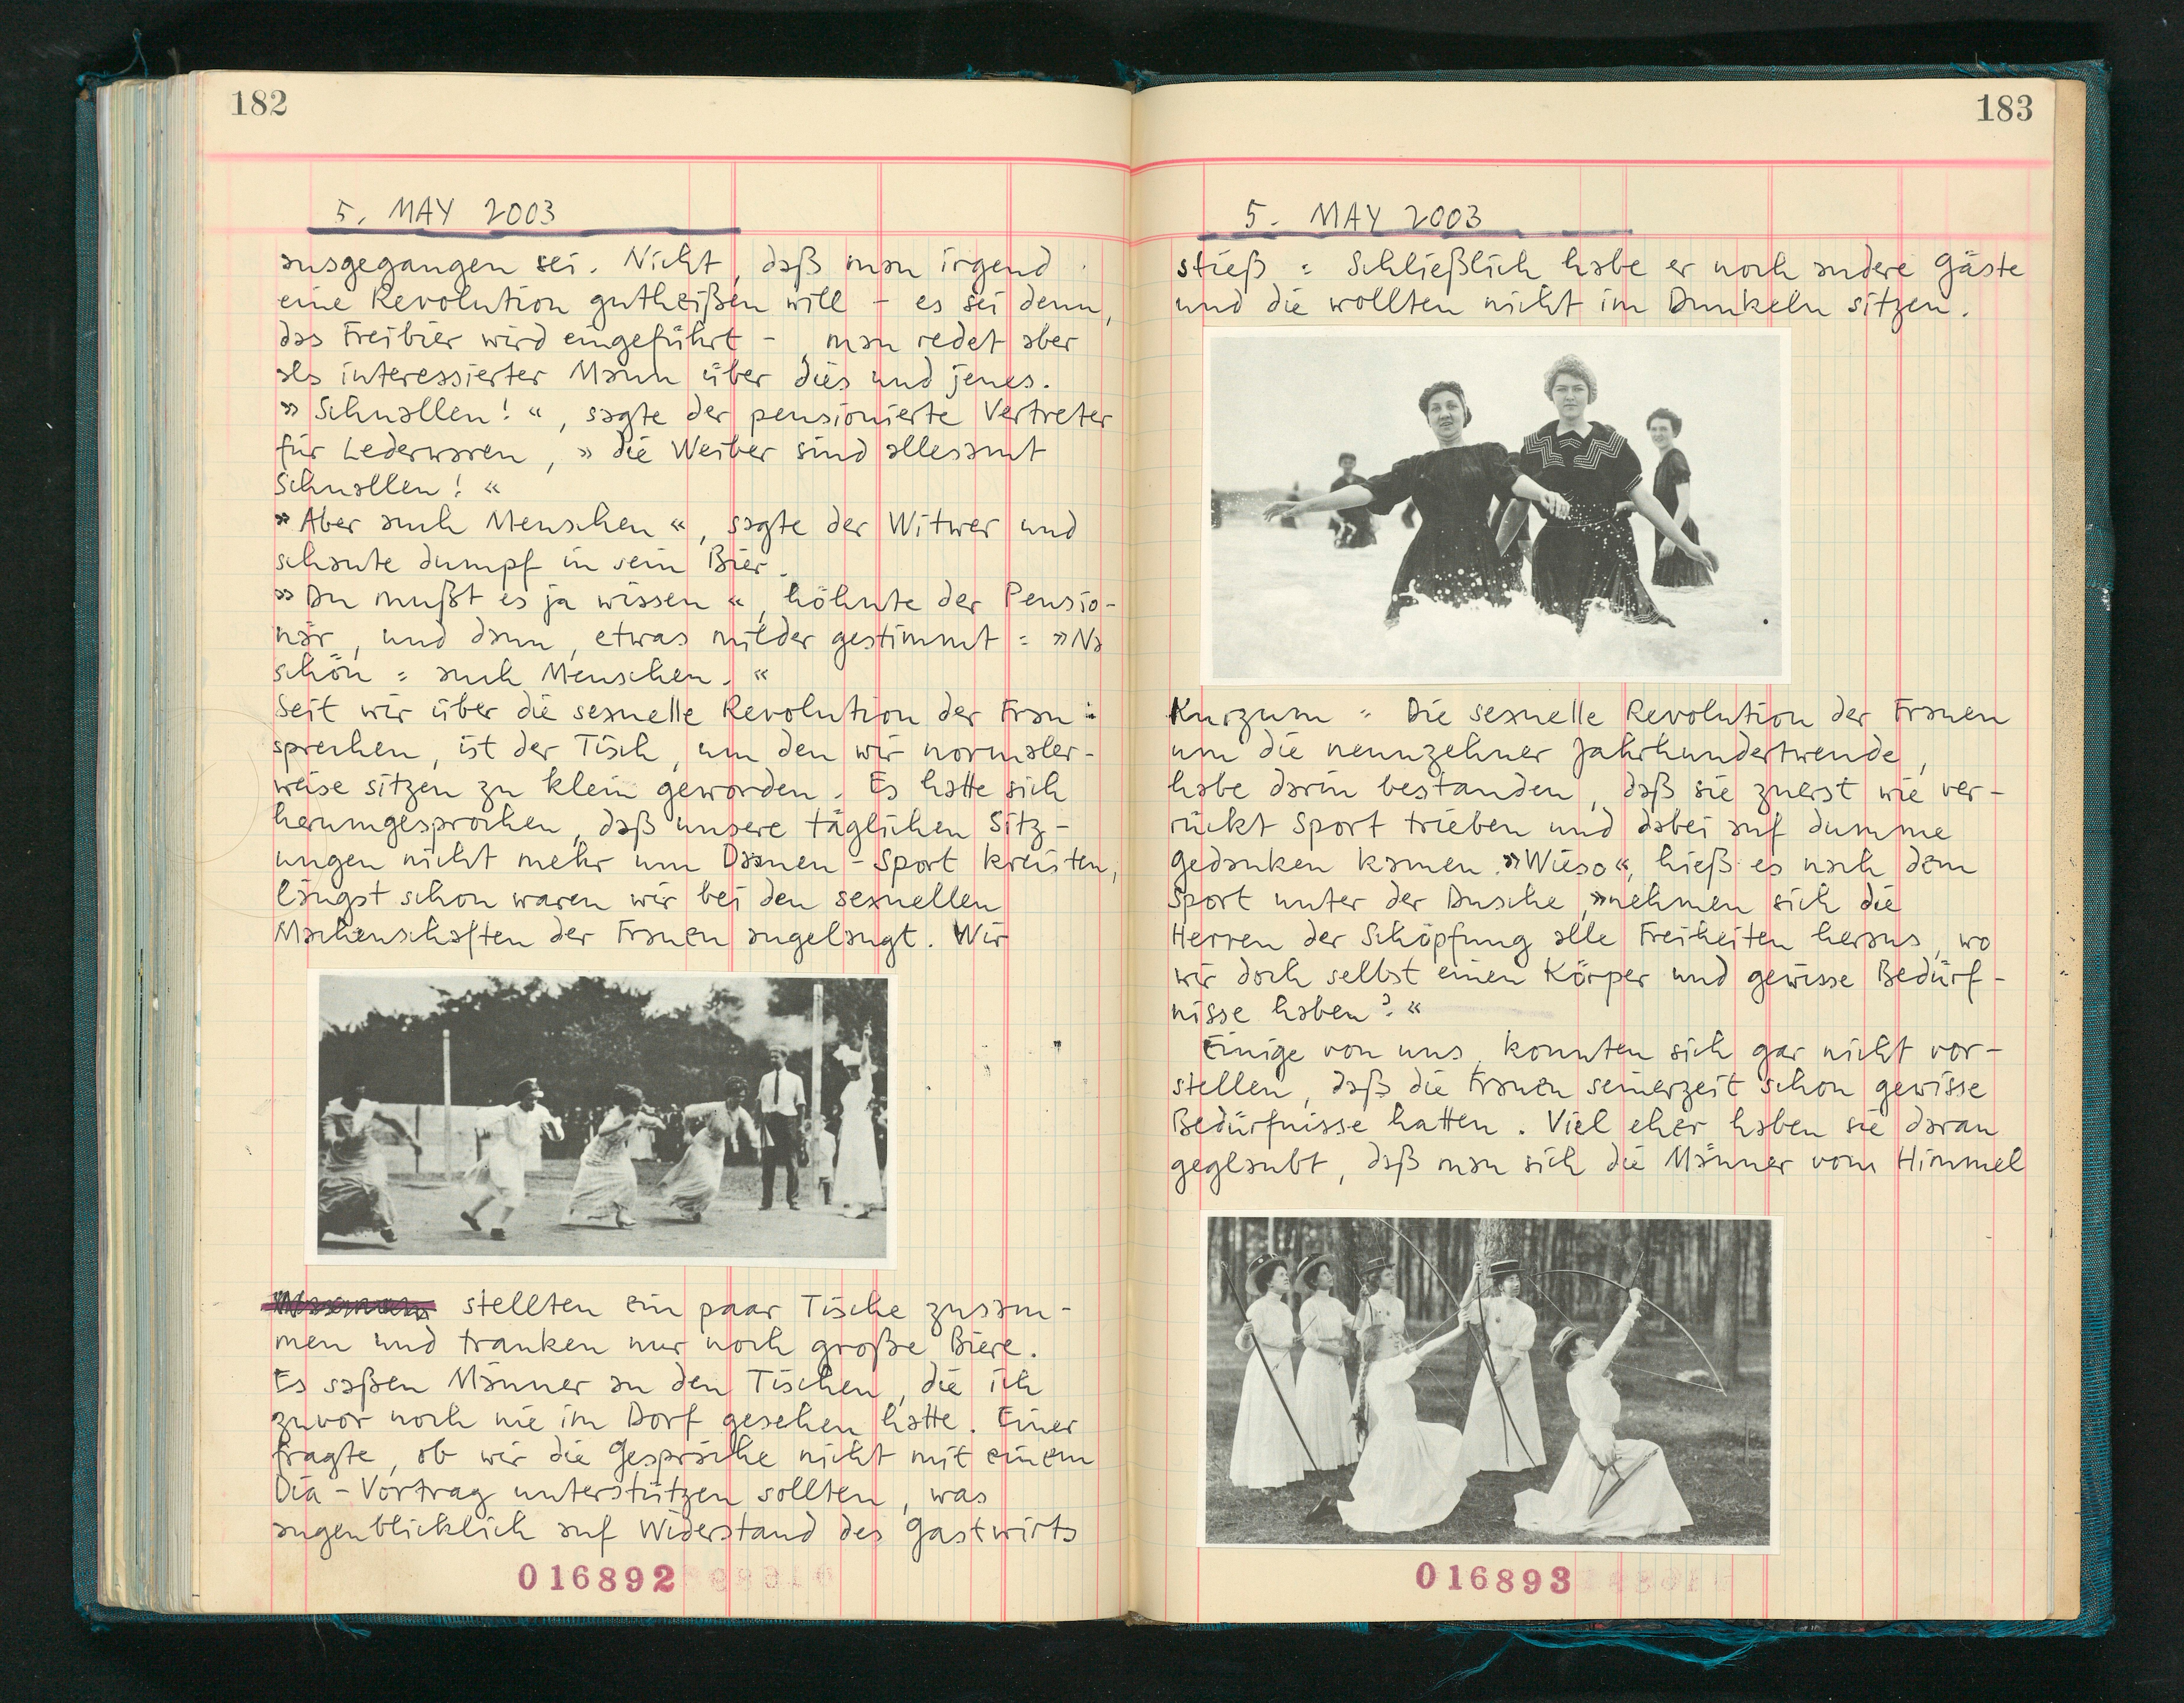 182
5. MAY 2003
ausgegangen sei. Nicht, daß man irgend
eine Revolution gutheißen will – es sei denn,
das Freibier wird eingeführt –, man redet aber
als interessierter Mann über dies und jenes.
»Schnallen!«, sagte der pensionierte Vertreter
für Lederwaren, »die Weiber sind allesamt
Schnallen!«
»Aber auch Menschen«, sagte der Witwer und
schaute dumpf in sein Bier.
»Du mußt es ja wissen«, höhnte der Pensio-
när, und dann, etwas milder gestimmt: »Na
schön: auch Menschen.«
Seit wir über die sexuelle Revolution der Frau
sprechen, ist der Tisch, um den wir normaler-
weise sitzen zu klein geworden. Es hatte sich
herumgesprochen, daß unsere täglichen Sitz-
ungen nicht mehr um Damen-Sport kreisten,
längst schon waren wir bei den sexuellen
Machenschaften der Frauen angelangt. Wir
stellten ein paar Tische zusam-
men und tranken nur noch große Biere.
Es saßen Männer an den Tischen, die ich
zuvor noch nie im Dorf gesehen hatte. Einer
fragte, ob wir die Gespräche nicht mit einem
Dia-Vortrag unterstützen sollten, was
augenblicklich auf Widerstand des Gastwirts
016892
183
5. MAY 2003
stieß: Schließlich habe er noch andere Gäste
und die wollten nicht im Dunkeln sitzen.
Kurzum: Die sexuelle Revolution der Frauen
um die neunzehner Jahrhundertwende,
habe darin bestanden, daß sie zuerst wie ver-
rückt Sport trieben und dabei auf dumme
Gedanken kamen. »Wieso«, hieß es nach dem
Sport unter der Dusche, »nehmen sich die
Herren der Schöpfung alle Freiheiten heraus, wo
wir doch selbst einen Körper und gewisse Bedürf-
nisse haben?«
Einige von uns konnten sich gar nicht vor-
stellen, daß die Frauen seinerzeit schon gewisse
Bedürfnisse hatten. Viel eher haben sie daran
geglaubt, daß man sich die Männer vom Himmel
016893